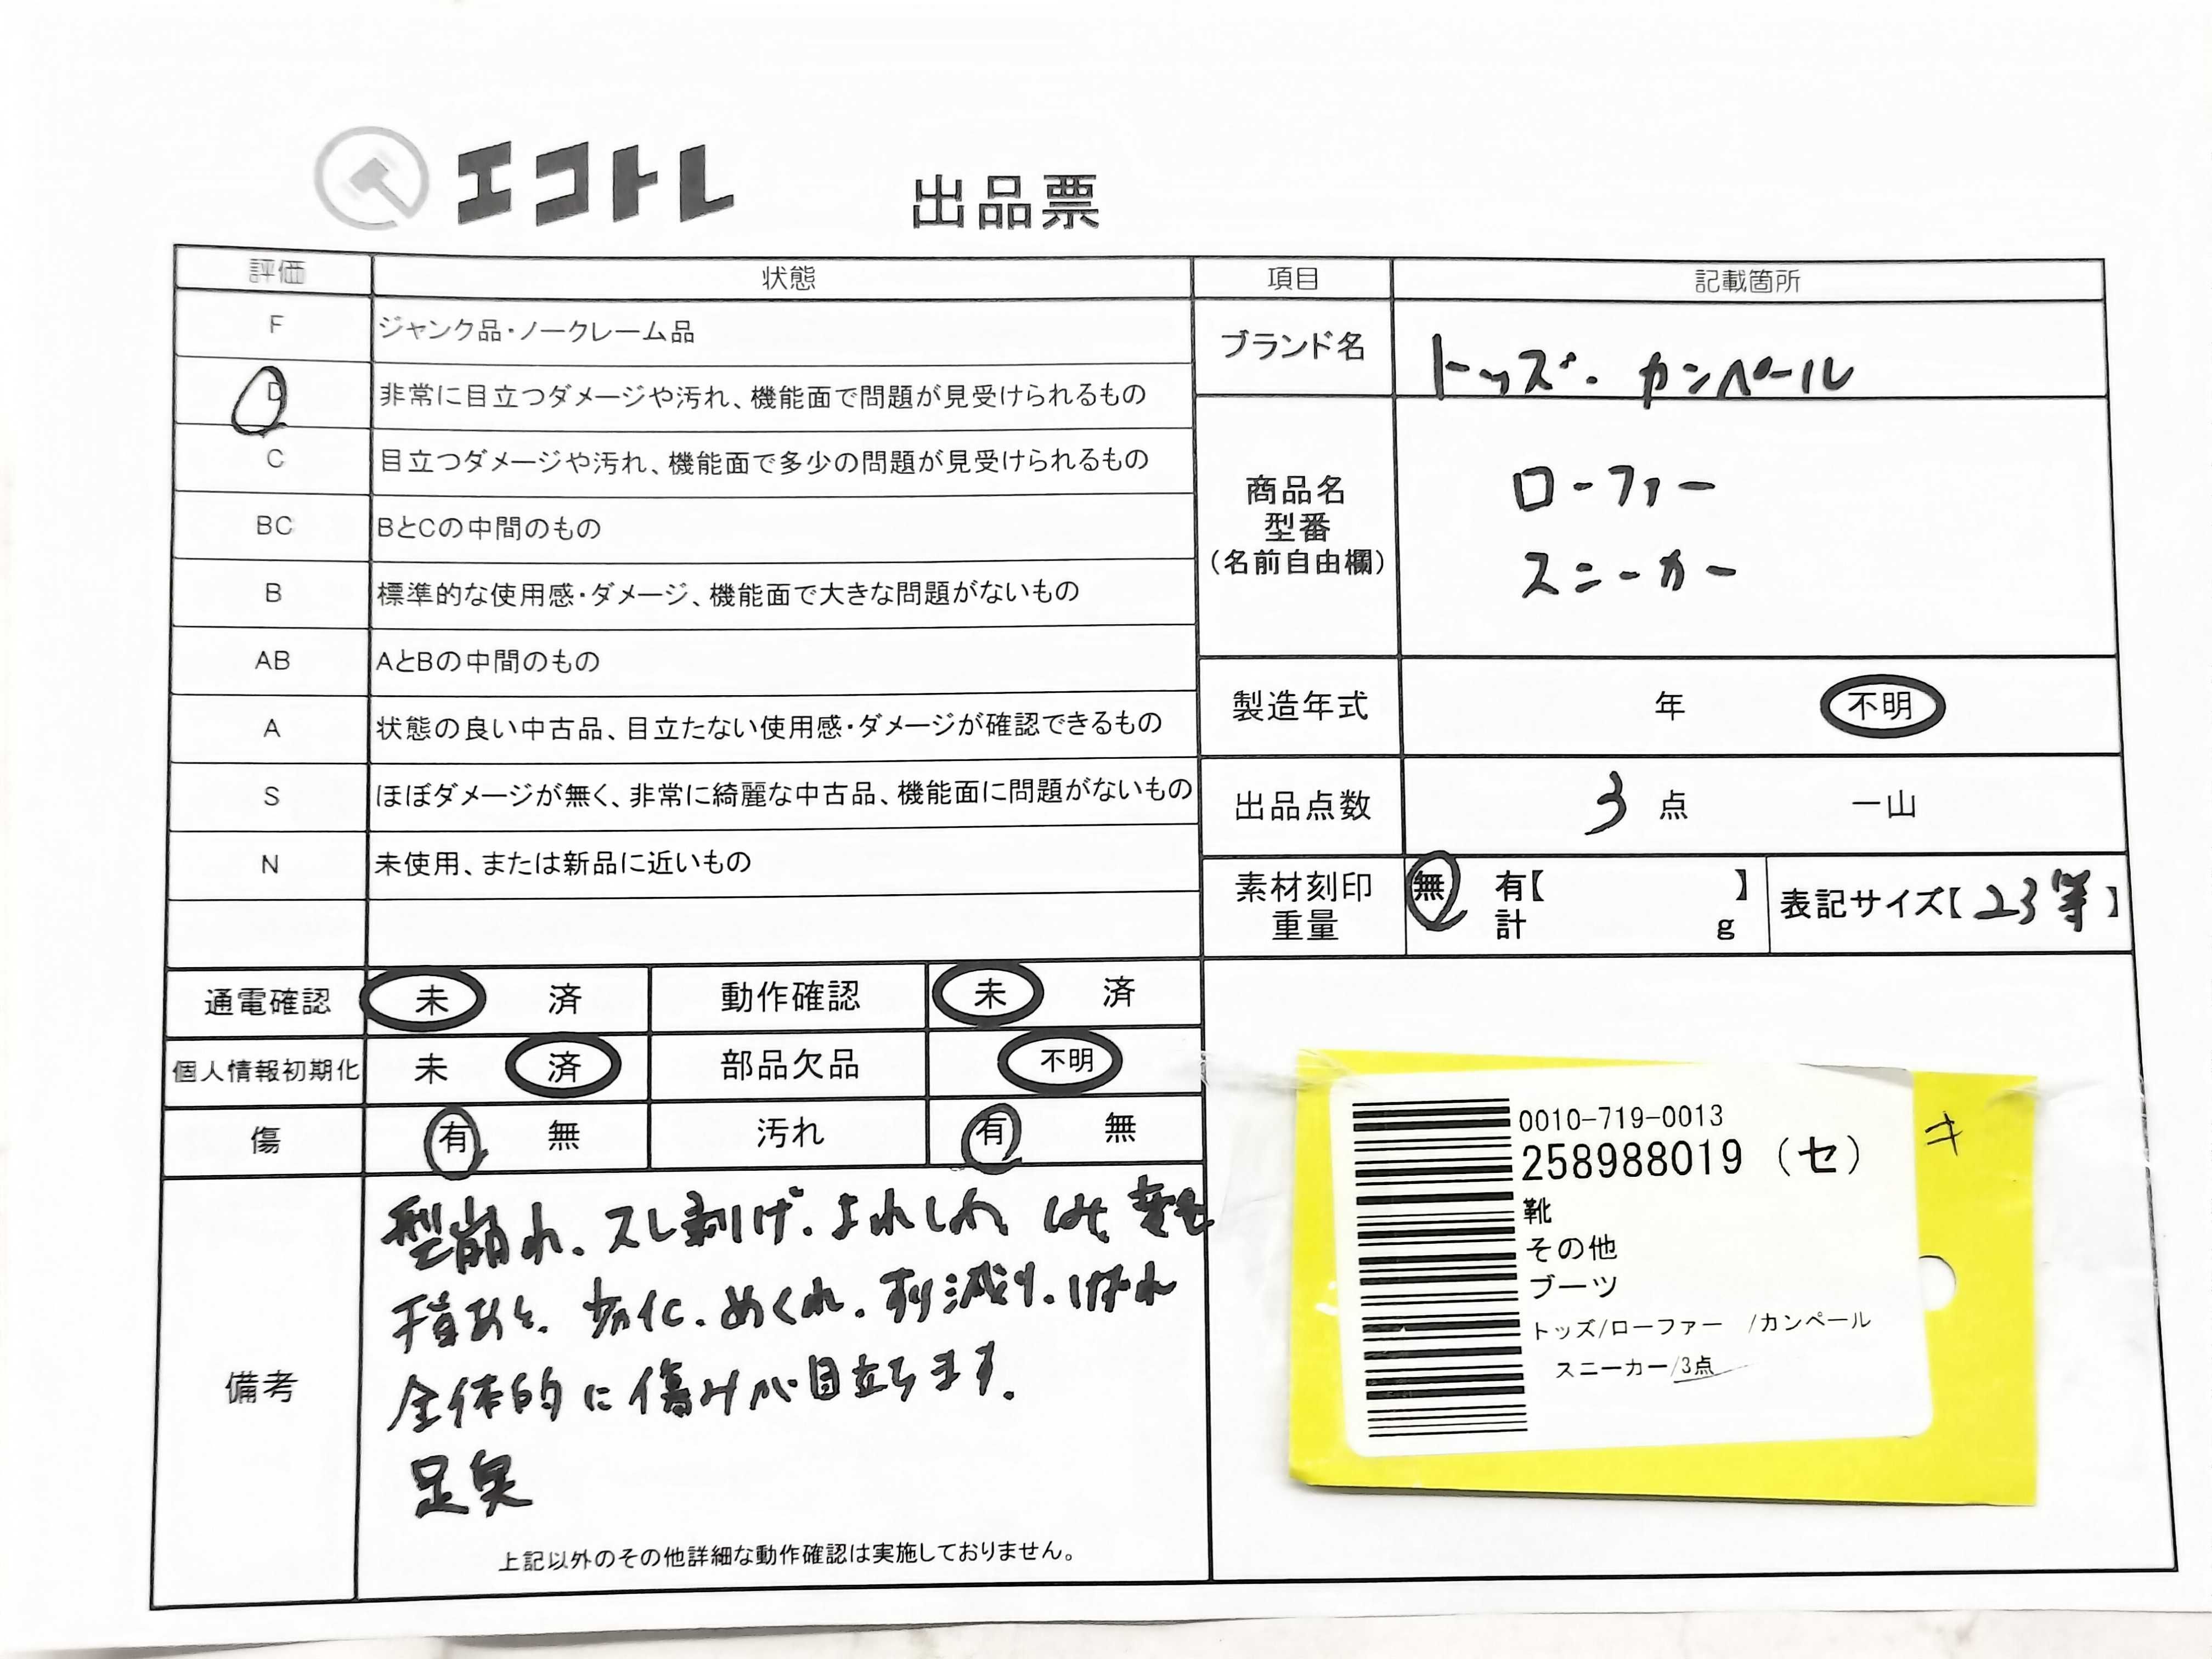 エコトレ 出品票
評価 状態 項目 記載箇所
F ジャンク品・ノークレーム品
ブランド名 トッズ・カンペール
D 非常に目立つダメージや汚れ、機能面で問題が見受けられるもの
C 目立つダメージや汚れ、機能面で多少の問題が見受けられるもの
BC BとCの中間のもの
B 標準的な使用感・ダメージ、機能面で大きな問題がないもの
AB AとBの中間のもの
A 状態の良い中古品、目立たない使用感・ダメージが確認できるもの
S ほぼダメージが無く、非常に綺麗な中古品、機能面に問題がないもの
N 未使用、または新品に近いもの
商品名
型番
(名前自由欄)
ローファー
スニーカー
製造年式 年 不明
出品点数 3 点 一山
素材刻印
重量
無 有【 】
計 g
表記サイズ【23等】
通電確認 未 済 動作確認 未 済
個人情報初期化 未 済 部品欠品 不明
傷 有 無 汚れ 有 無
備考
型崩れ、スレ剥げ、よれしわ しみ 変色
劣化、めくれ、すり減り、はがれ
全体的に傷みが目立ちます。
足臭
上記以外のその他詳細な動作確認は実施しておりません。
0010-719-0013
258988019 (セ)
キ
靴
その他
ブーツ
トッズ/ローファー /カンペール
スニーカー/3点